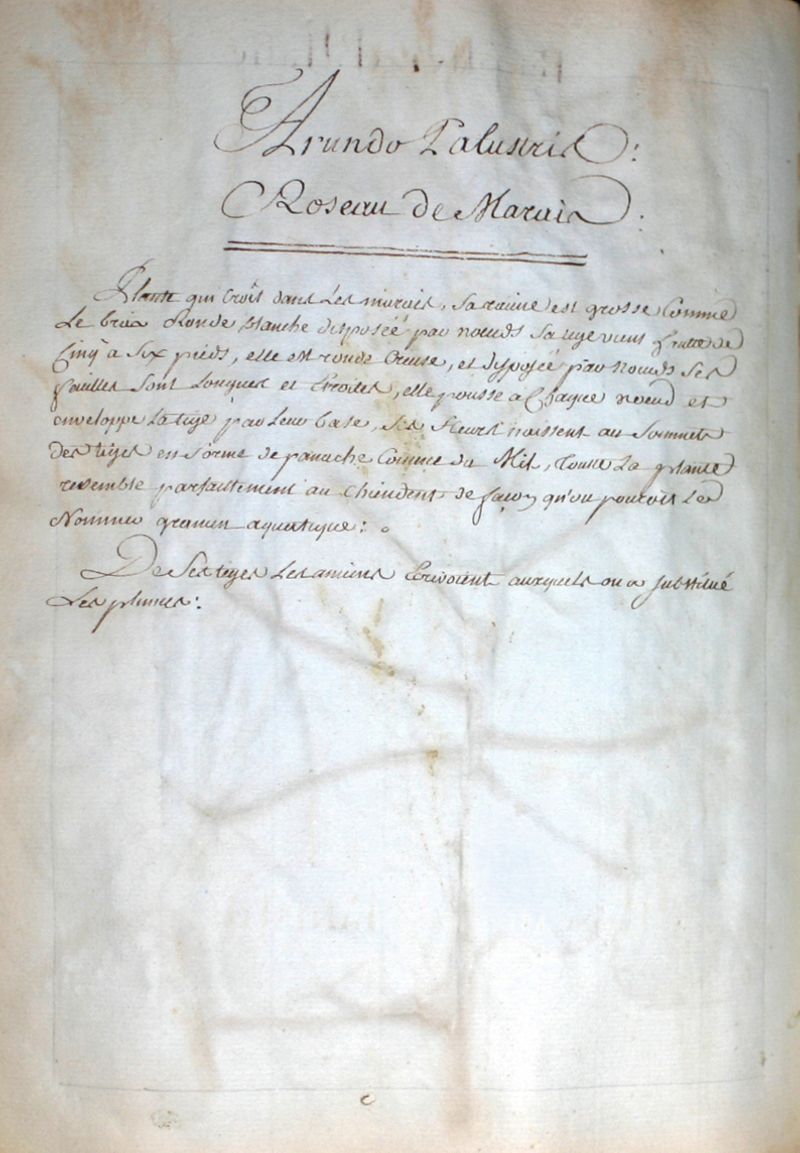 Arundo Palustris:
Roseau de Marais.
Plante qui croît dans Les marais, sa racine est grosse Comme
Le bras Ronde blanche disposée par nœuds sa tige vient haute de
Cinq a Six pieds, elle est ronde Creuse, et disposée par nœuds Ses
feuilles sont Longues et Etroites, elle pousse a Chaque nœud et
enveloppe La tige par Leur base, Ses fleurs naissent au Sommet
des tiges en forme de panache Comme du Mil, toute La plante
resemble parfaitement au Chiendent de façon qu'on pouroit Le
Nommer gramen aquatique:
De Ses tiges Les anciens Ecrivoient auxquels on a substitué
Les plumes: